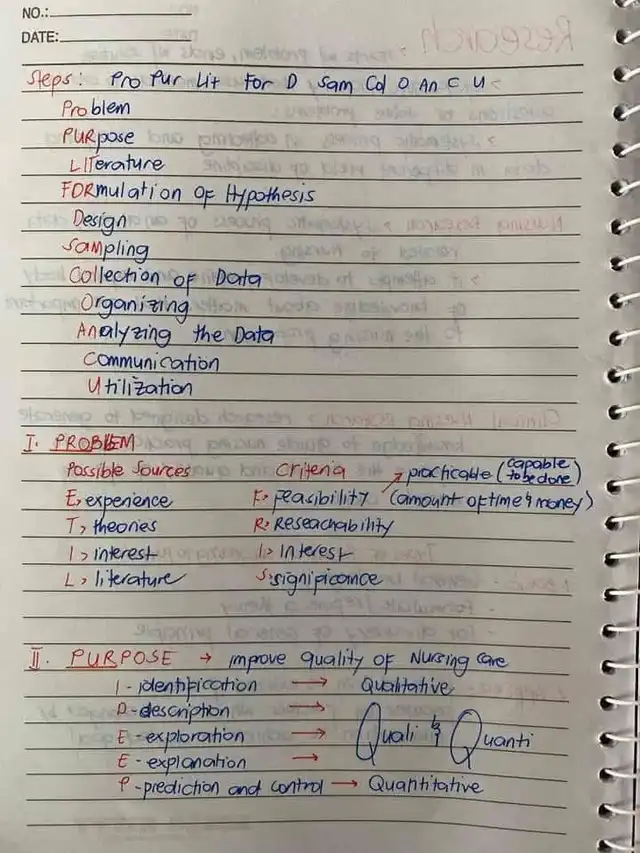 NO.:
DATE:
Steps: Pro Pur Lit For D Sam Col O An C U
Problem
PURpose
LITerature
FORmulation of Hypothesis
Design
Sampling
Collection of Data
Organizing
Analyzing the Data
Communication
Utilization
I. PROBLEM
Possible Sources Criteria → practicable (capable to be done)
E> experience F> feasibility (amount of time & money)
T> theories R> Reseachability
I> interest I> Interest
L> literature S> significance
II. PURPOSE → improve quality of Nursing care
I - identification → Qualitative
D - description →
E - exploration → Quali & Quanti
E - explanation →
P - prediction and control → Quantitative